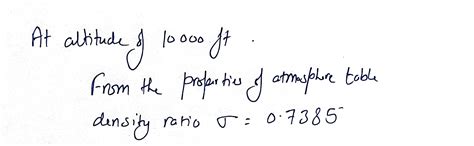 At altitude of 10000 ft .
From the properties of atmosphere table
density ratio σ = 0.7385